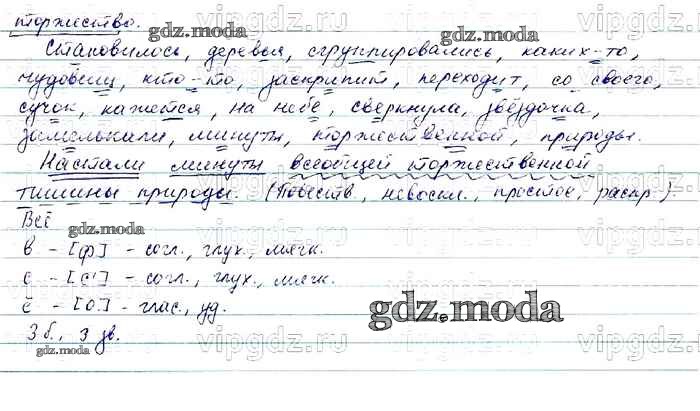 торжество.
Становилось, деревья, сгруппировались, каких-то,
чудовищ, кто-то, заскрипит, переходит, со своего,
сучок, кажется, на небе, сверкнула, звёздочка,
замелькали, минуты, торжественной, природы.
Настали минуты всеобщей торжественной
тишины природы. (Повеств., невоскл., простое, распр.).
Всё
в – [ф] – согл., глух., мягк.
с – [с'] – согл., глух., мягк.
ё – [о] – глас., уд.
3 б., 3 зв.
gdz.moda
gdz.moda
gdz.moda
gdz.moda
gdz.moda
vipgdz.ru
vipgdz.ru
vipgdz.ru
vipgdz.ru